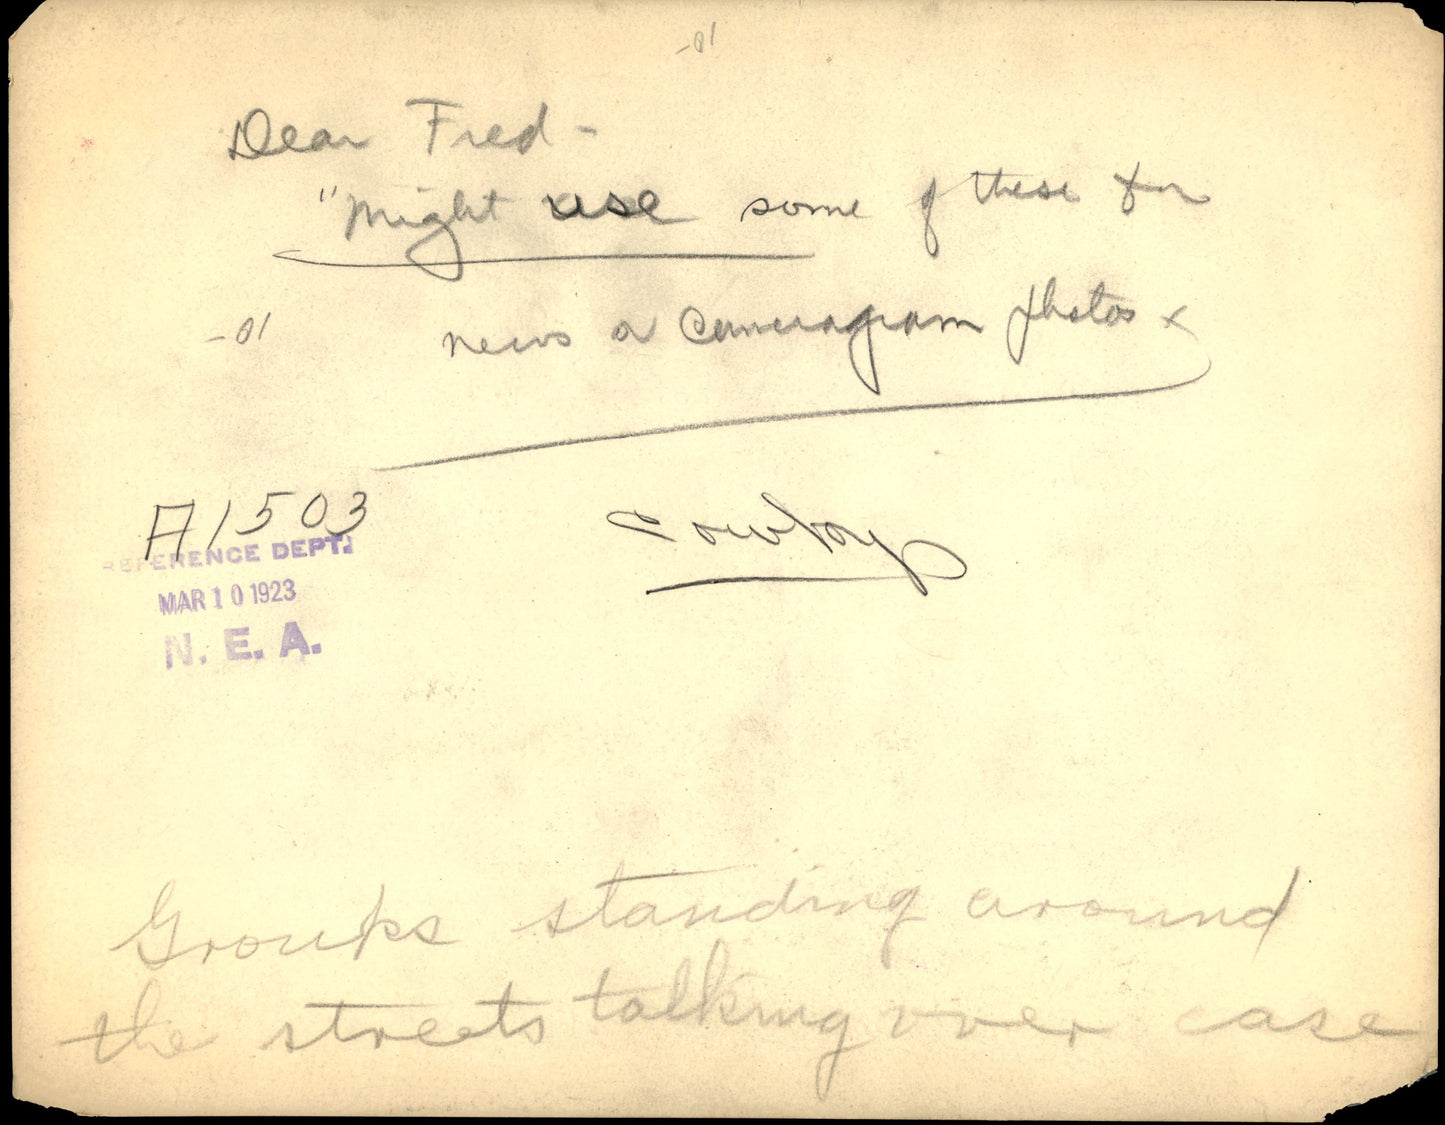 -01
Dear Fred -
"Might use some of these for
news or Cameragram photos x
-01
Cowboy
A1503
REFERENCE DEPT.
MAR 10 1923
N. E. A.
Groups standing around
the streets talking over case